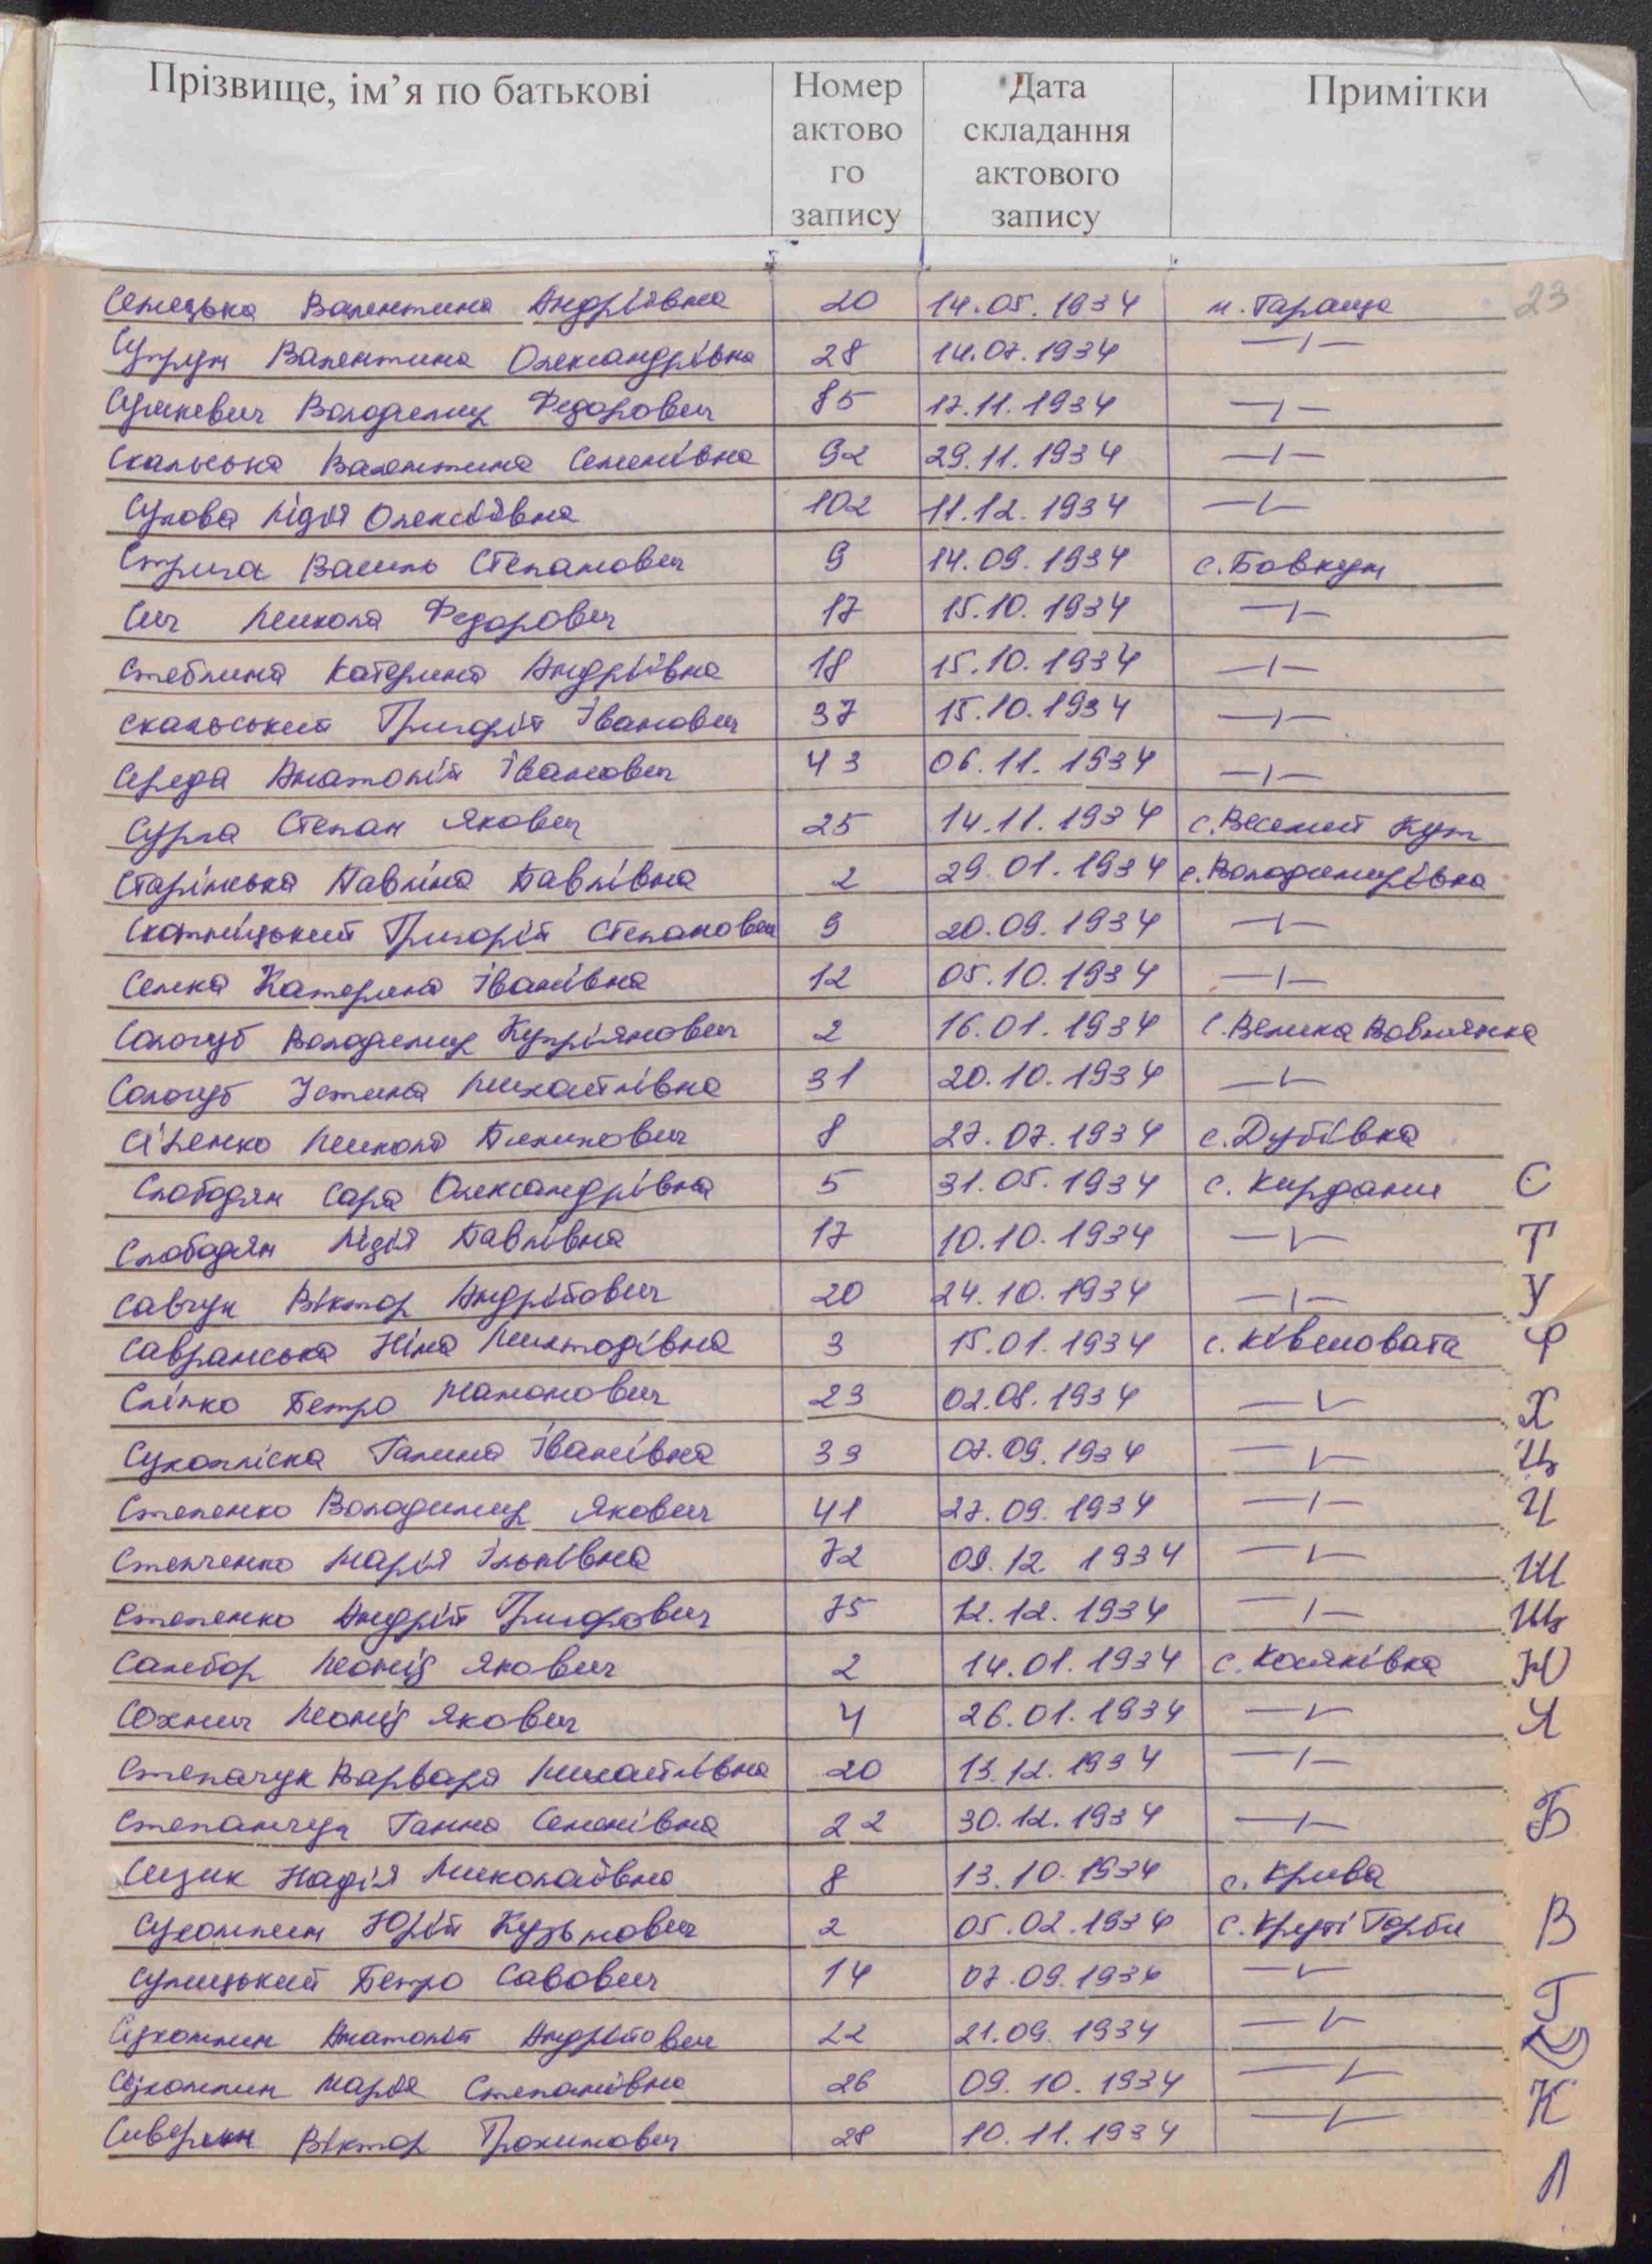 Прізвище, ім’я по батькові Номер актово го запису Дата складання актового запису Примітки
23
Семецька Валентина Андріївна 20 14.05.1934 м. Тараща
Супрун Валентина Олександрівна 28 14.07.1934 —｜—
Сушкевич Володимир Федорович 85 17.11.1934 —｜—
Скальська Валентина Семенівна 92 29.11.1934 —｜—
Сулова Лідія Олексіївна 102 11.12.1934 —｜—
Стрига Василь Степанович 9 14.09.1934 с. Бовкун
Сич Микола Федорович 17 15.10.1934 —｜—
Стеблина Катерина Андріївна 18 15.10.1934 —｜—
Скальський Григорій Іванович 37 15.10.1934 —｜—
Середа Анатолій Іванович 43 06.11.1934 —｜—
Сурла Степан Якович 25 14.11.1934 с. Веселий Кут
Старінська Павліна Павлівна 2 29.01.1934 с. Володимирівка
Скотніцький Григорій Степанович 9 20.09.1934 —｜—
Семка Катерина Іванівна 12 05.10.1934 —｜—
Сологуб Володимир Купріянович 2 16.01.1934 с. Велика Вовнянка
Сологуб Устина Михайлівна 31 20.10.1934 —｜—
Сіленко Микола Пилипович 8 27.07.1934 с. Дубівка
Слободян Сара Олександрівна 5 31.05.1934 с. Кирдани С
Слободян Лідія Павлівна 17 10.10.1934 —｜— Т
Савчук Віктор Андрійович 20 24.10.1934 —｜— У
Савранська Ніна Митодівна 3 15.01.1934 с. Ківшовата Ф
Сліпко Петро Мамонович 23 02.08.1934 —｜— Х
Сухоліска Галина Іванівна 39 07.09.1934 —｜— Ц
Степенко Володимир Якович 41 27.09.1934 —｜— Ч
Степченко Марія Ільківна 72 09.12 1934 —｜— Ш
Степенко Андрій Григорович 75 12.12.1934 —｜— Щ
Самбор Леонід Якович 2 14.01.1934 с. Косяківка Ю
Сохнич Леонід Якович 4 26.01.1934 —｜— Я
Степачук Варвара Михайлівна 20 13.12.1934 —｜—
Степанчук Ганна Семенівна 22 30.12.1934 —｜— Б
Сизик Надія Миколаївна 8 13.10.1934 с. Крива
Сухомлин Юрій Кузьмович 2 05.02.1934 с. Круті Горби В
Сулицький Петро Савович 14 07.09.1934 —｜— Г
Сухомлин Анатолій Андрійович 22 21.09.1934 —｜—
Сухомлин Марія Степанівна 26 09.10.1934 —｜— К
Сиверин Віктор Прокипович 28 10.11.1934 —｜—
Л